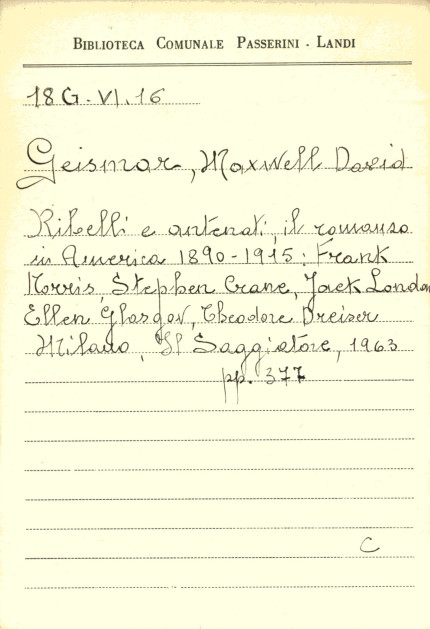 BIBLIOTECA COMUNALE PASSERINI - LANDI
18 G. VI. 16
Geismar, Maxwell David
Ribelli e antenati, il romanzo
in America 1890-1915: Frank
Norris, Stephen Crane, Jack London
Ellen Glasgov, Theodore Dreiser
Milano, Il Saggiatore, 1963
pp. 377
C